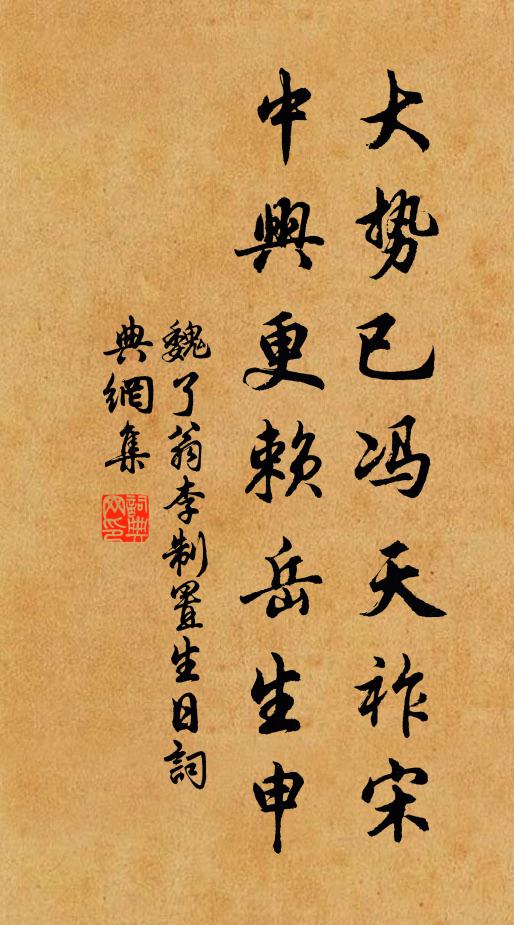 大势已冯天祚宋
中興更赖岳生申
魏了翁李制置生日詞
典網集
詞典網印